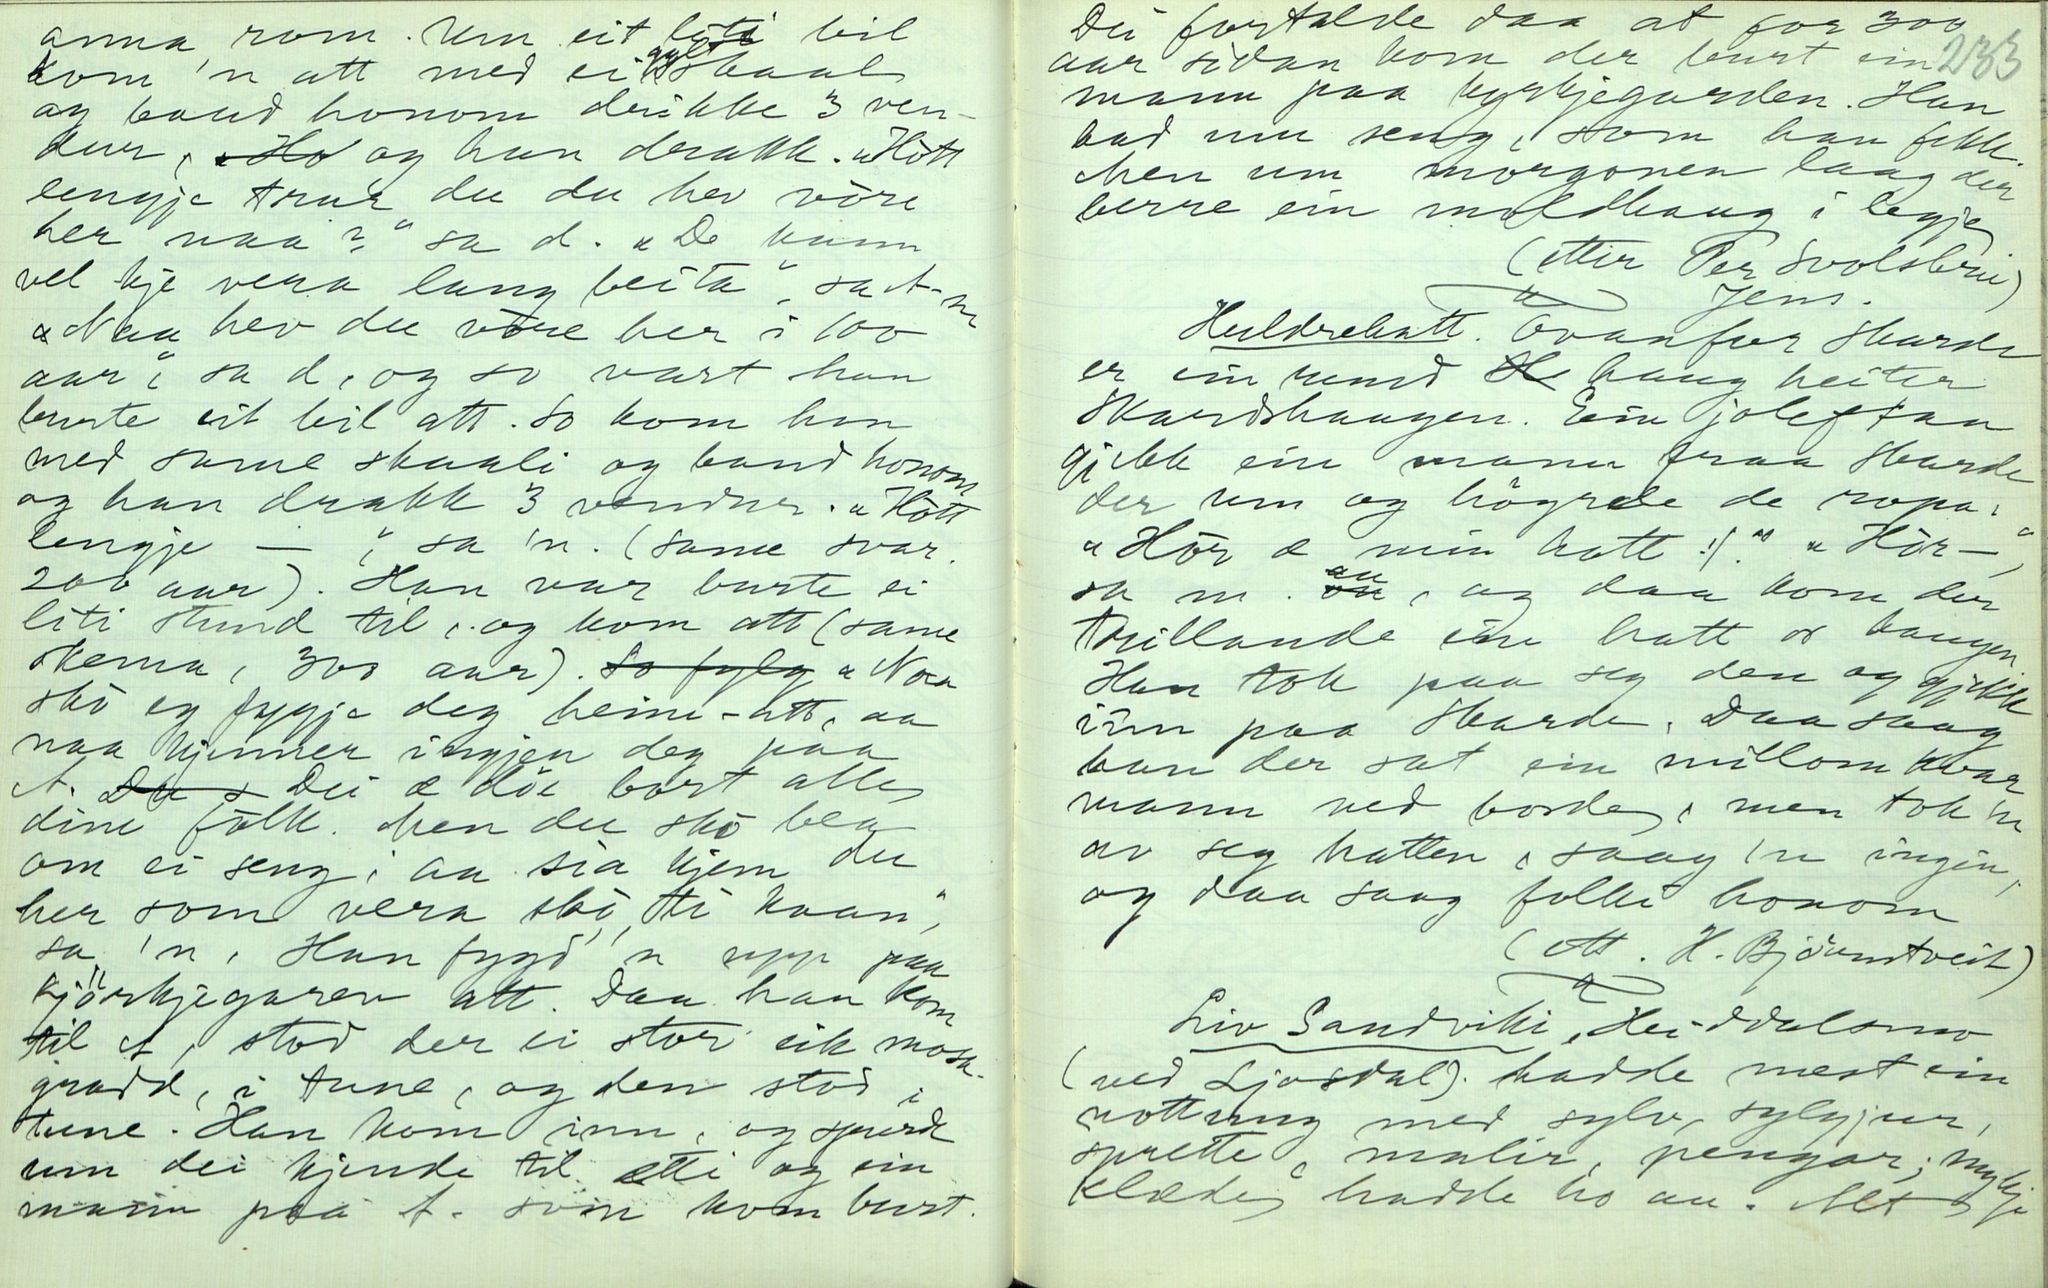 anna rom. Um eit liti bil
kom 'n att med ei gull skaal
og baud honom drikke 3 ven-
dur, og han drakk. "Hott
lengje trur du du hev vöre
her naa?" sa d. "De kann
vel kje vera lang beita", sa A-n
"Naa hev du vöre her i 100
aar", sa d, og so vart han
burte eit bil att. So kom han
med same skaali og baud honom
og han drakk 3 vendur. "Hott
lengje — ", sa 'n. (same svar.
200 aar). Han var burte ei
liti stund til, og kom att (same
skema, 300 aar). So fylg "Noa
skö eg fygje deg heim-att, aa
naa kjenner ingjen deg paa
A. Dei æ döe bort alle
dine fölk. Men du skö bea
om ei seng, aa sia kjem du
her som vera skö, ti kaan",
sa 'n. Han fygd 'n upp paa
kjörkjegaren att. Daa han kom
til A, stod der ei stor eik mosa-
gradd, i tune, og den stod i
tune. Han kom inn, og spurde
um dei kjende til etti og ein
mann paa A. som kom burt.
Dei fortalde daa at for 300
aar sidan kom der burt ein 233
mann paa kyrkjegarden. Han
bad um seng, som han fekk.
Men um morgonen laag der
berre ein moldhaug i legje
(etter Per Svolsbru)
Jens.
Huldrehatt. Ovanfor Skarde
er ein rund haug heiter
Skardshaugen. Ein joleftaa
gjekk ein mann fraa Skarde
der um og högrde de ropa,
"Hör æ min hatt :/." "Hör—",
sa m. au, og daa kom der
trillande ein hatt or haugen
Han tok paa seg den og gjekk
inn paa Skarde. Daa saag
han der sat ein millom kvar
mann ved borde, men tok 'n
av seg hatten, saag 'n ingin,
og daa saag folki honom
(ett. H. Björntveit)
Liv Sandviki, Hei-ddalsmo
(ved Ljosdal). hadde mest ein
nottung med sylv, sylgjur,
sprette, malir, pengar; mykje
klæde hadde ho au. Alt